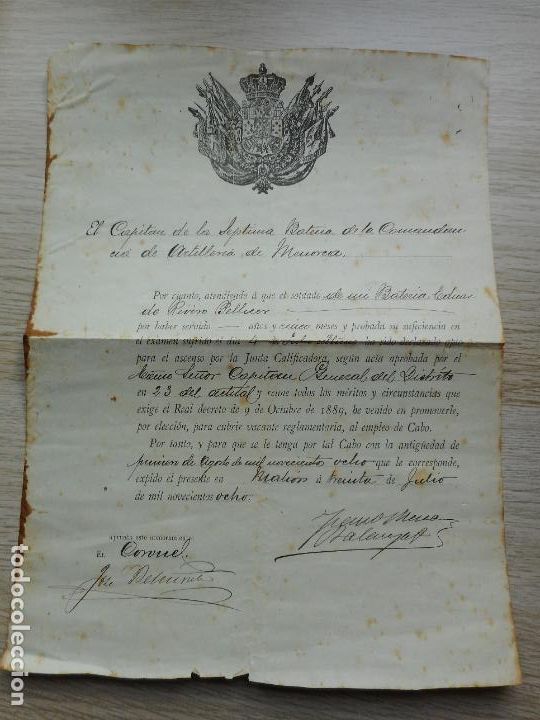 El Capitan de la Septima Bateria de la Comandan
cia de Artilleria de Menorca.
Por cuanto, atendiendo á que el soldado de mi Bateria Eduar
do Rivero Pellicer
por haber servido años y cinco meses y probada su suficiencia en
el examen sufrido el dia 4 ha sido declarado apto
para el ascenso por la Junta Calificadora, según acta aprobada por el
Excmo Señor Capitan General del Distrito
en 23 del actual y reune todos los méritos y circunstancias que
exige el Real decreto de 9 de Octubre de 1889, he venido en promoverle,
por elección, para cubrir vacante reglamentaria, al empleo de Cabo.
Por tanto, y para que se le tenga por tal Cabo con la antigüedad de
primero de Agosto de mil novecientos ocho que le corresponde,
expido el presente en Mahon á treinta de Julio
de mil novecientos ocho.
Apruebo este nombramiento
El Coronel
José
todocoleccion
todocoleccion.net